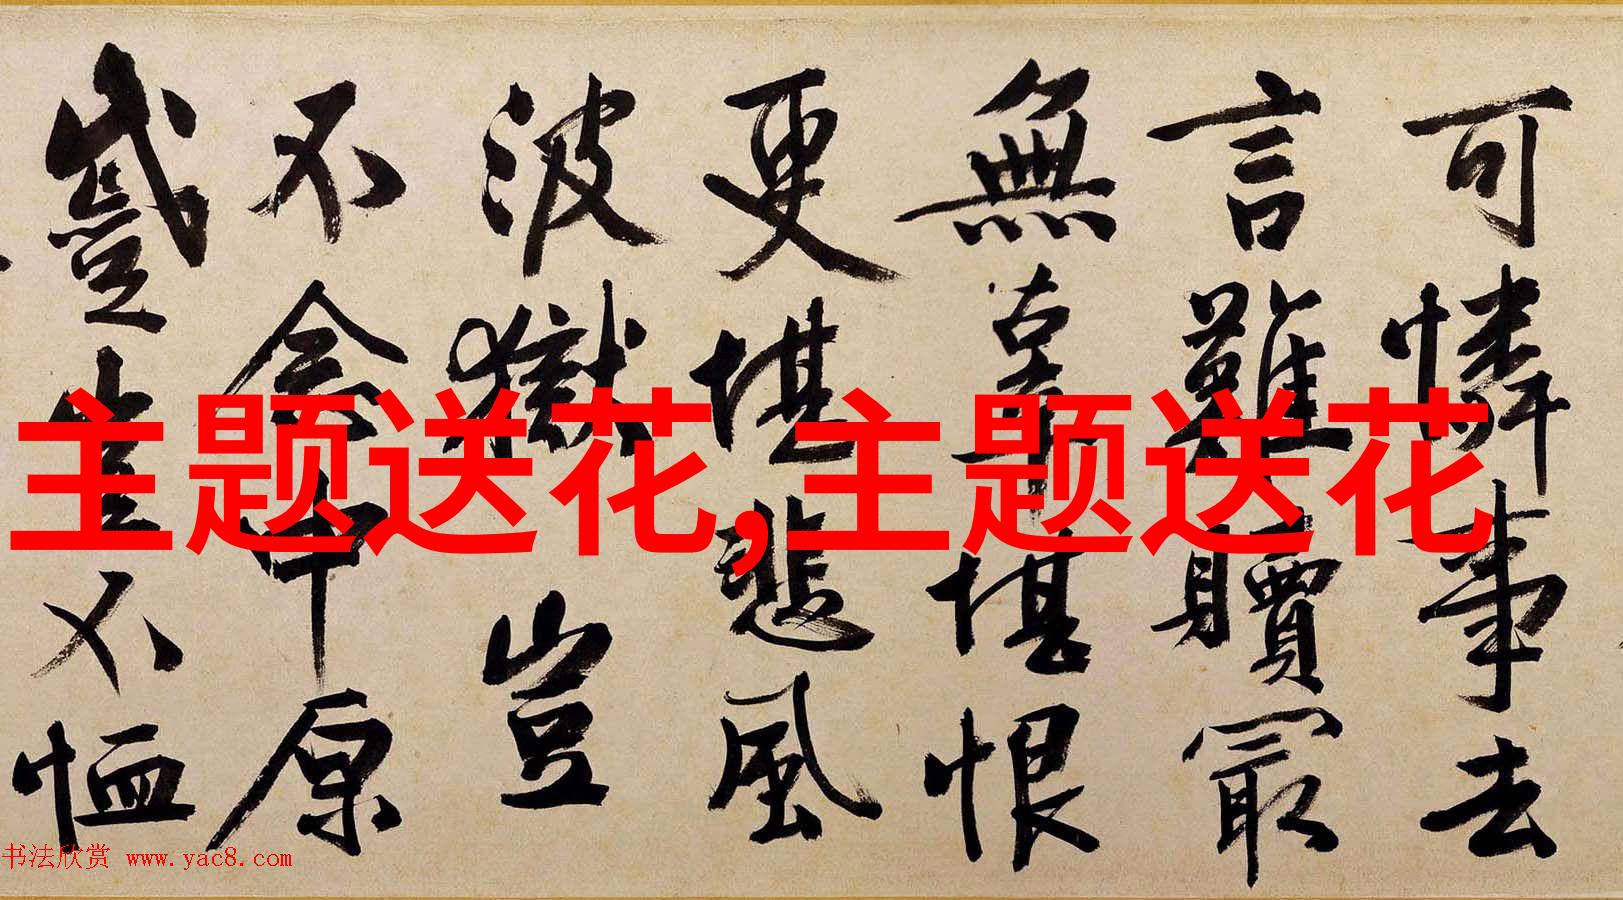 可憐事去
言難贖最
無辜堪恨
更堪悲風
波獄豈
不念中原
蹙豈不恤
主题送花,主题送花
书法欣赏 www.yac8.com